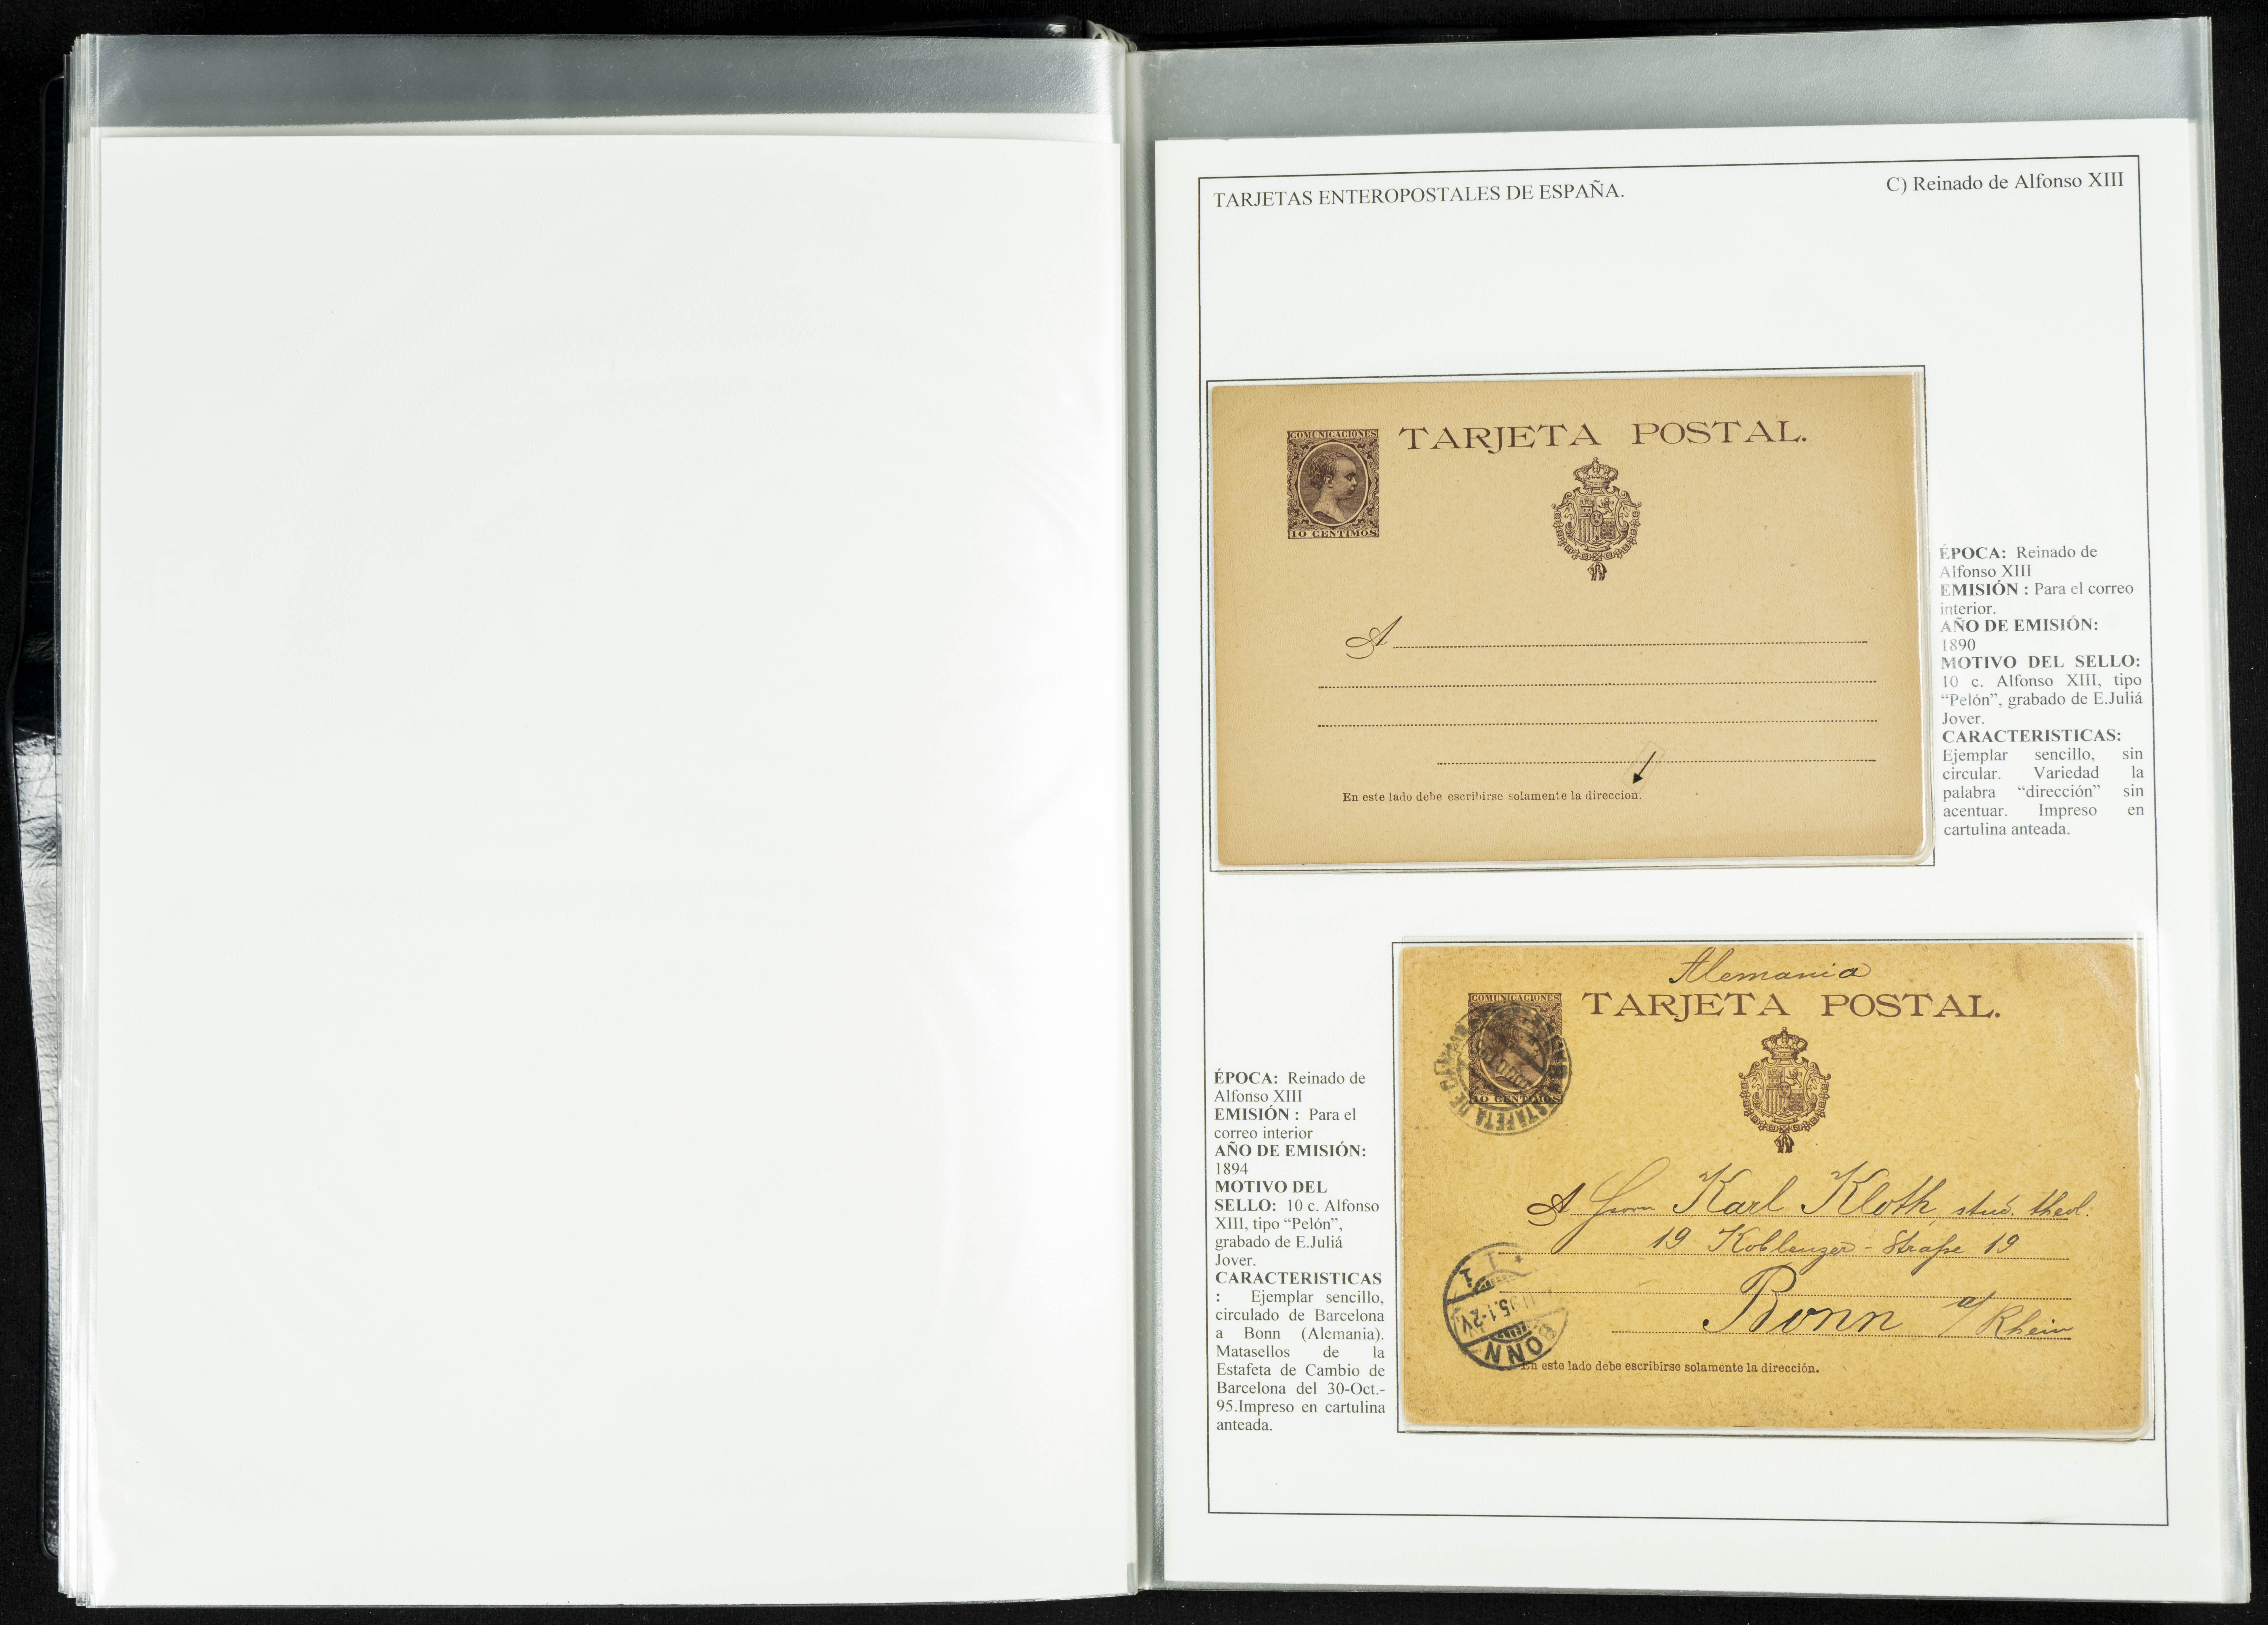 TARJETAS ENTEROPOSTALES DE ESPAÑA.
C) Reinado de Alfonso XIII
COMUNICACIONES
10 CENTIMOS
TARJETA POSTAL.
A
En este lado debe escribirse solamente la direccion.
ÉPOCA: Reinado de
Alfonso XIII
EMISIÓN : Para el correo
interior.
AÑO DE EMISIÓN:
1890
MOTIVO DEL SELLO:
10 c. Alfonso XIII, tipo
“Pelón”, grabado de E.Juliá
Jover.
CARACTERISTICAS:
Ejemplar sencillo, sin
circular. Variedad la
palabra “dirección” sin
acentuar. Impreso en
cartulina anteada.
ÉPOCA: Reinado de
Alfonso XIII
EMISIÓN : Para el
correo interior
AÑO DE EMISIÓN:
1894
MOTIVO DEL
SELLO: 10 c. Alfonso
XIII, tipo “Pelón”,
grabado de E.Juliá
Jover.
CARACTERISTICAS
: Ejemplar sencillo,
circulado de Barcelona
a Bonn (Alemania).
Matasellos de la
Estafeta de Cambio de
Barcelona del 30-Oct.-
95.Impreso en cartulina
anteada.
Alemania
COMUNICACIONES
10 CENTIMOS
TARJETA POSTAL.
ESTAFETA DE
A Herrn Karl Kloth, stud. theol.
19 Koblenzer-Straße 19
Bonn a/Rhein
BONN
En este lado debe escribirse solamente la dirección.